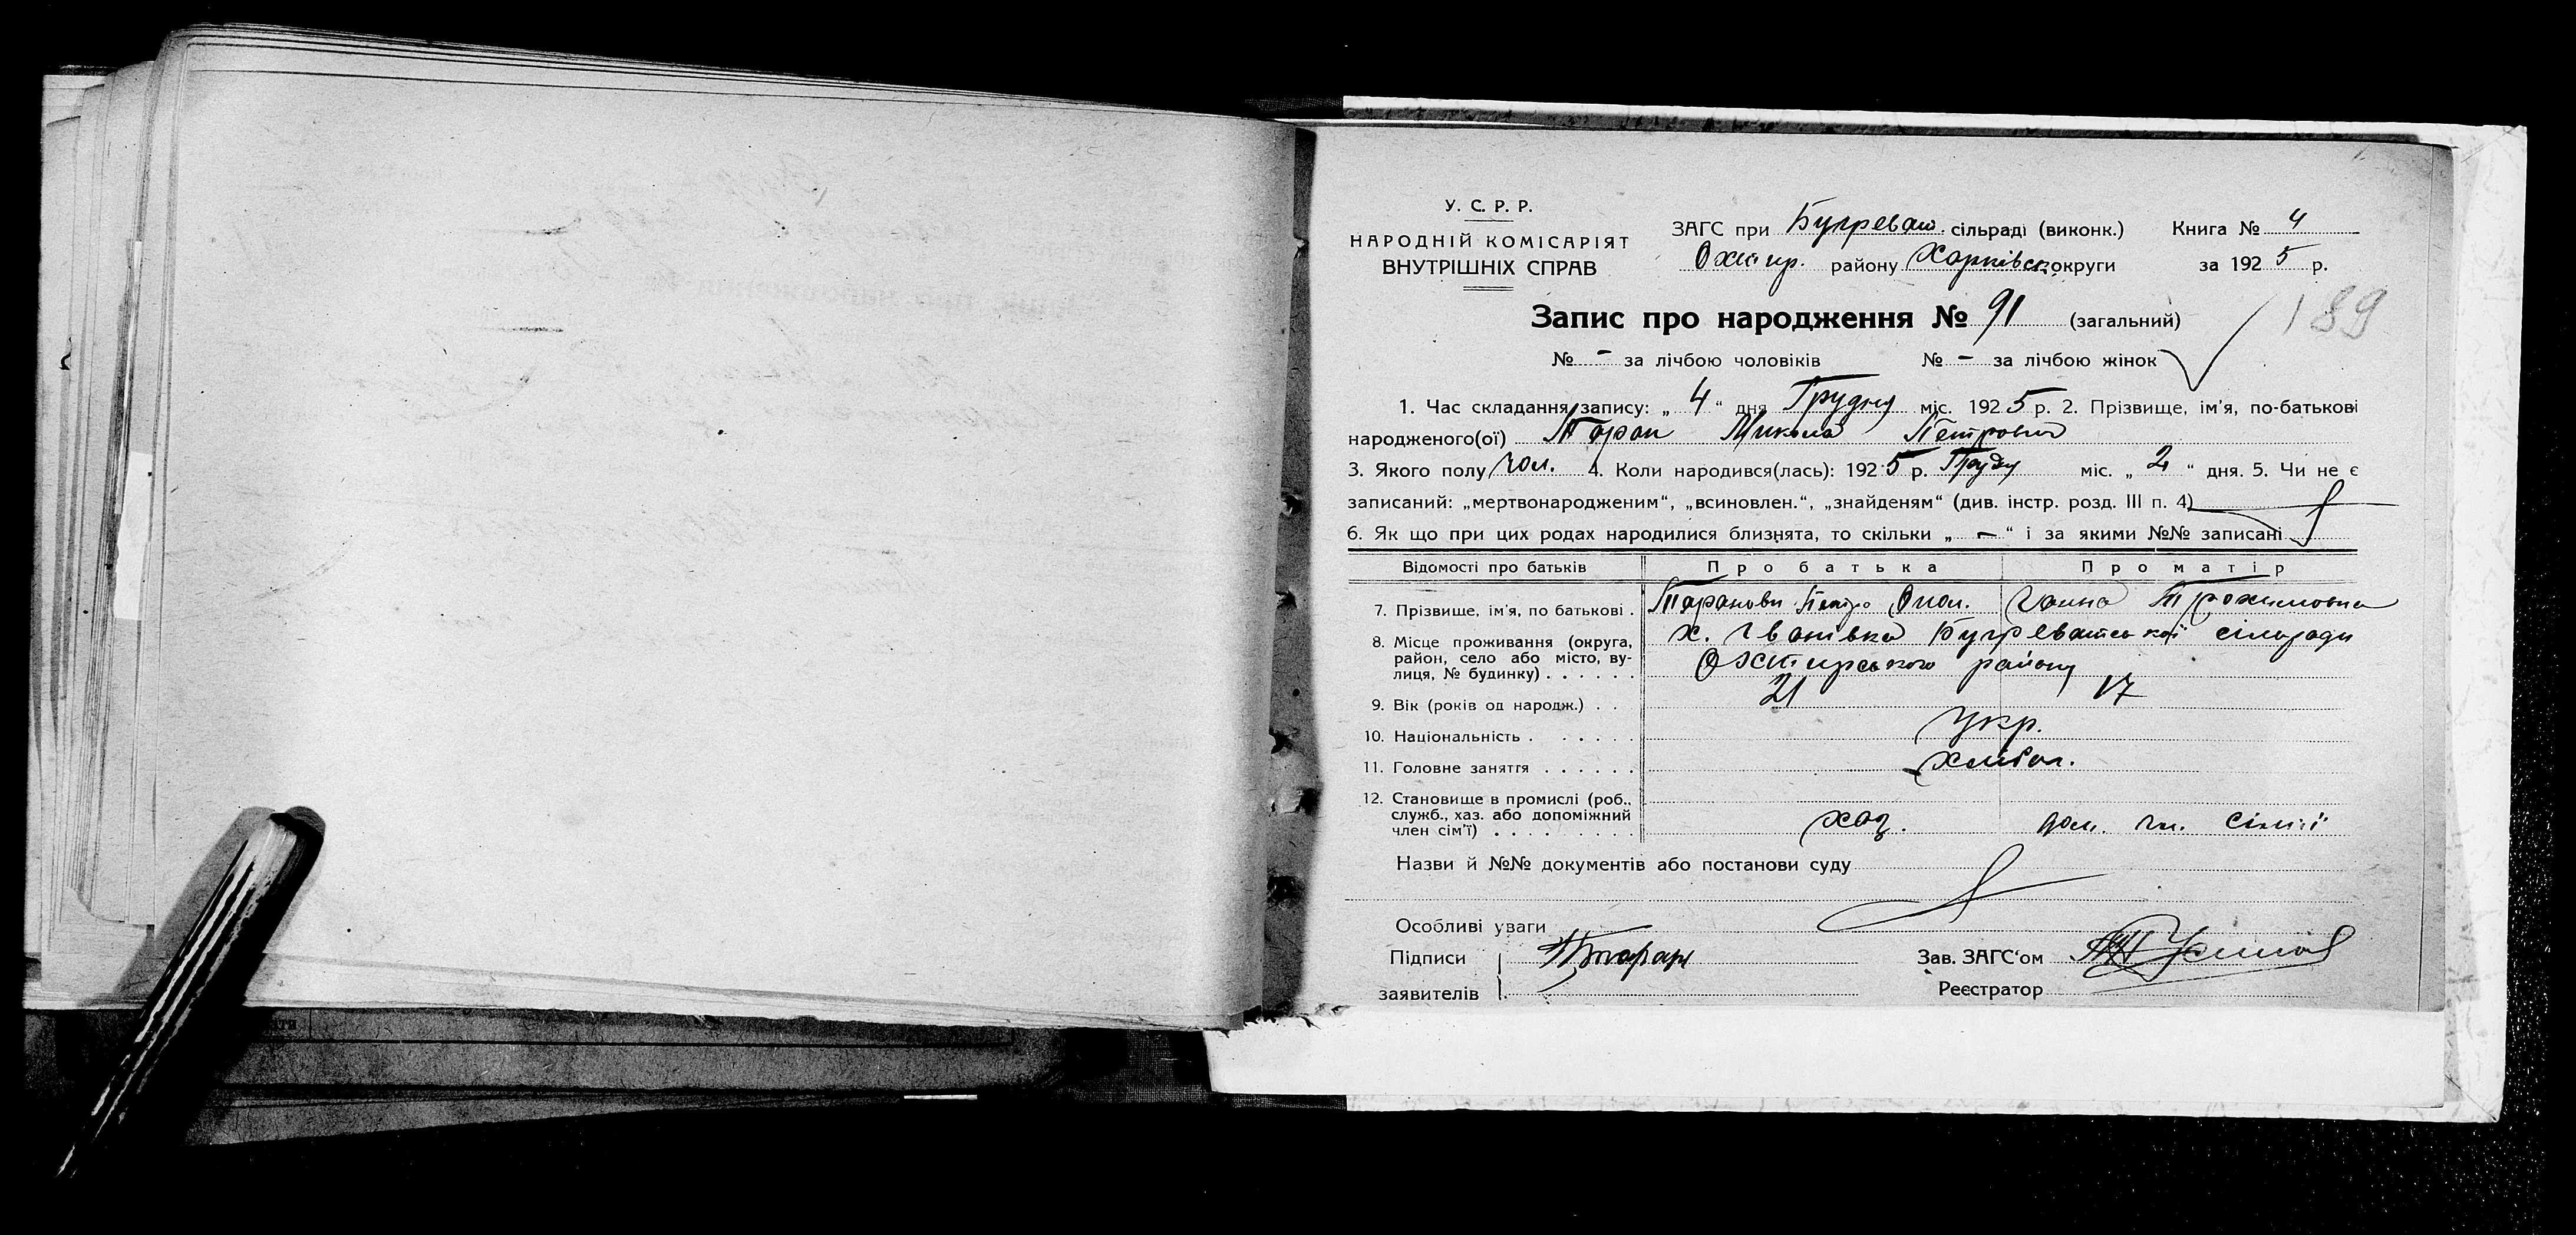 У. С. Р. Р.
НАРОДНІЙ КОМІСАРІЯТ
ВНУТРІШНІХ СПРАВ
ЗАГС при Бугреват. сільраді (виконк.) Книга № 4
Охтир. району Харківськ. округи за 1925 р.
Запис про народження № 91 (загальний)
189
№ - за лічбою чоловіків № - за лічбою жінок
1. Час складання запису: „ 4 “ дня Грудня міс. 1925 р. 2. Прізвище, ім'я, по-батькові
народженого(ої) Таран Микола Петрович
3. Якого полу чол. 4. Коли народився(лась): 1925 р. Груд міс. „ 2 “ дня. 5. Чи не є
записаний: „мертвонародженим“, „всиновлен.“, „знайденям“ (див. інстр. розд. III п. 4)
6. Як що при цих родах народилися близнята, то скільки „ - “ і за якими №№ записані
Відомості про батьків Про батька Про матір
7. Прізвище, ім'я, по батькові . Таранови Петро Ганна Трохимовна
8. Місце проживання (округа, район, село або місто, вулиця, № будинку) . . . . . . х. Іванівка Бугреватської сільради
Охтирського району
9. Вік (років од народж.) . . 21 17
10. Національність . . . . . . Укр.
11. Головне заняття . . . . . . Хлібол.
12. Становище в промислі (роб., служб., хаз. або допоміжний член сім'ї) . . . . . . . . хаз. доп. чл. сімії
Назви й №№ документів або постанови суду
Особливі уваги
Підписи Таран Зав. ЗАГС'ом
заявителів Реєстратор